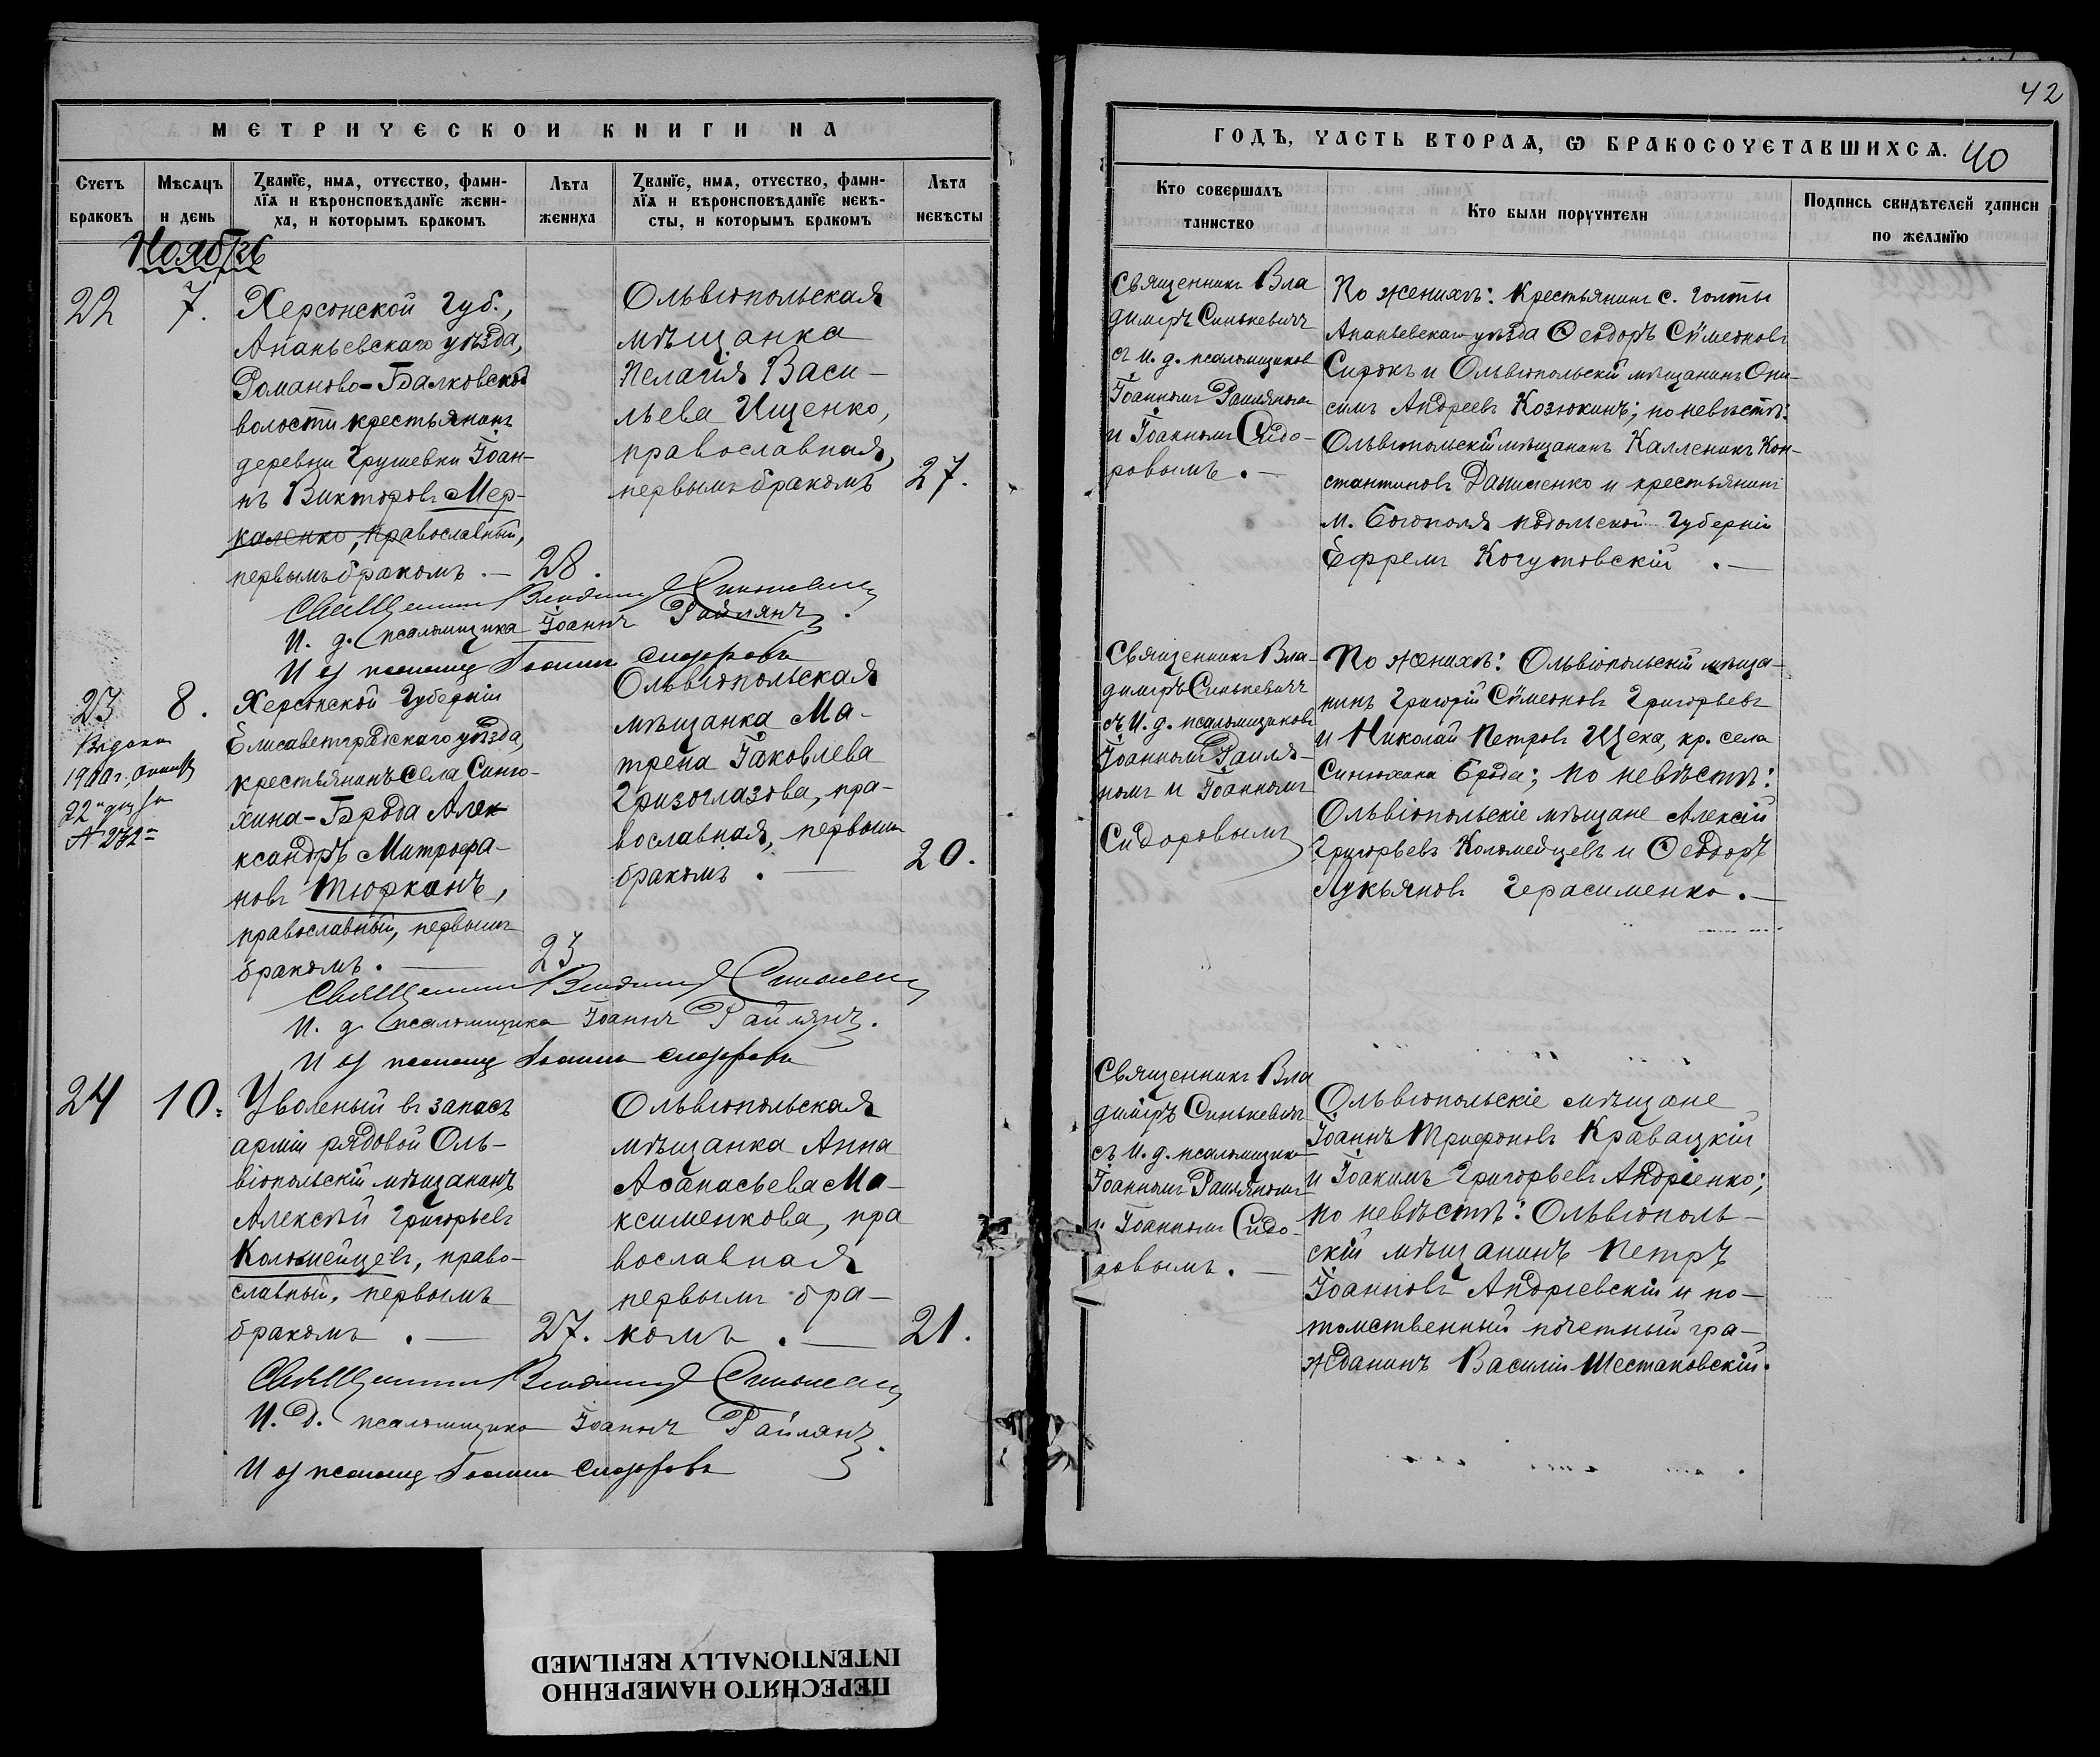 МЕТРИЧЕСКОЙ КНИГИ НА
Счетъ браковъ
Мѣсяцъ и день
Званїе, имѧ, отчество, фами-
лїѧ и вѣроисповѣданїе жени-
ха, и которымъ бракомъ
Лѣта жениха
Званїе, имѧ, отчество, фами-
лїѧ и вѣроисповѣданїе невѣ-
сты, и которымъ бракомъ
Лѣта невѣсты
Ноябрь
22
7.
Херсонской губ.,
Ананьевскаго уѣзда,
Романово-Балковской
волости крестьянинъ
деревни Грушевки Іоан-
нъ Викторовъ Мер-
каленко, православный,
первымъ бракомъ.
28.
Ольвіопольская
мѣщанка
Пелагія Васи-
льева Ищенко,
православная,
первымъ бракомъ
27.
Священникъ Владиміръ Синькевичъ
И. д. псаломщика Іоаннъ Райлянъ.
И д псаломщ Іоаннъ Сидоровъ
23
8.
Выдана
1900 г.
22
№ 232
Херсонской губерніи
Елисаветградскаго уѣзда,
крестьянинъ села Синю-
хина-Брода Алек
ксандръ Митрофа-
новъ Тюрканъ,
православный, первымъ
бракомъ.
23.
Ольвіопольская
мѣщанка Ма-
трена Іаковлева
Гризоглазова, пра-
вославная, первымъ
бракомъ.
20.
Священникъ Владиміръ Синькевичъ
И. д. псаломщика Іоаннъ Райлянъ.
И д псаломщ Іоаннъ Сидоровъ
24
10.
Уволеный въ запасъ
арміи рядовой Оль-
віопольскій мѣщанинъ
Алексѣй Григорьевъ
Коломейцевъ, право-
славный, первымъ
бракомъ.
27.
Ольвіопольская
мѣщанка Анна
Аѳанасьева Ма-
ксименкова, пра
вославная
первымъ бра-
комъ.
21.
Священникъ Владиміръ Синькевичъ
И. д. псаломщика Іоаннъ Райлянъ.
И д псаломщ Іоаннъ Сидоровъ
42
ГОДЪ, ЧАСТЬ ВТОРАѦ, Ѡ БРАКОСОЧЕТАВШИХСѦ.
40
Кто совершалъ
таинство
Кто были поручители
Подпись свидѣтелей записи
по желанїю
Священникъ Вла
диміръ Синькевичъ
съ и. д. псаломщиковъ
Іоанномъ Райляномъ
и Іоанномъ Сидо-
ровымъ.
По женихѣ: крестьянинъ с. Голты
Ананьевскаго уѣзда Ѳеодоръ Сѷмеоновъ
Сирокъ и Ольвіопольскій мѣщанинъ Они-
симъ Андреевъ Козюкинъ; по невѣстѣ:
Ольвіопольскій мѣщанинъ Каллиникъ Кон-
стантиновъ Данименко и крестьянинъ
м. Богополя Подольской губерніи
Ефремъ Когутовскій.
Священникъ Вла-
диміръ Синькевичъ
съ и. д. псаломщиковъ
Іоанномъ Райля-
номъ и Іоанномъ
Сидоровымъ
По женихѣ: Ольвіопольскій мѣща-
нинъ Григорій Сѷмеоновъ Григорьевъ
и Николай Петровъ Щека, кр. села
Синюхина Брода; по невѣстѣ:
Ольвіопольскіе мѣщане Алексій
Григорьевъ Коломейцевъ и Ѳеодоръ
Лукьяновъ Герасименко.
Священникъ Вла
диміръ Синькевичъ
съ и. д. псаломщика
Іоанномъ Райляномъ
и Іоанномъ Сидо-
ровымъ.
Ольвіопольскіе мѣщане
Іоаннъ Трифоновъ Кравацкій
и Іоакимъ Григорьевъ Андріенко;
по невѣстѣ: Ольвіополь-
скій мѣщанинъ Петръ
Іоанновъ Андріевскій и по-
томственный почетный гра-
жданинъ Василій Шестаковскій.
ПЕРЕСНЯТО НАМЕРЕННО
INTENTIONALLY REFILMED